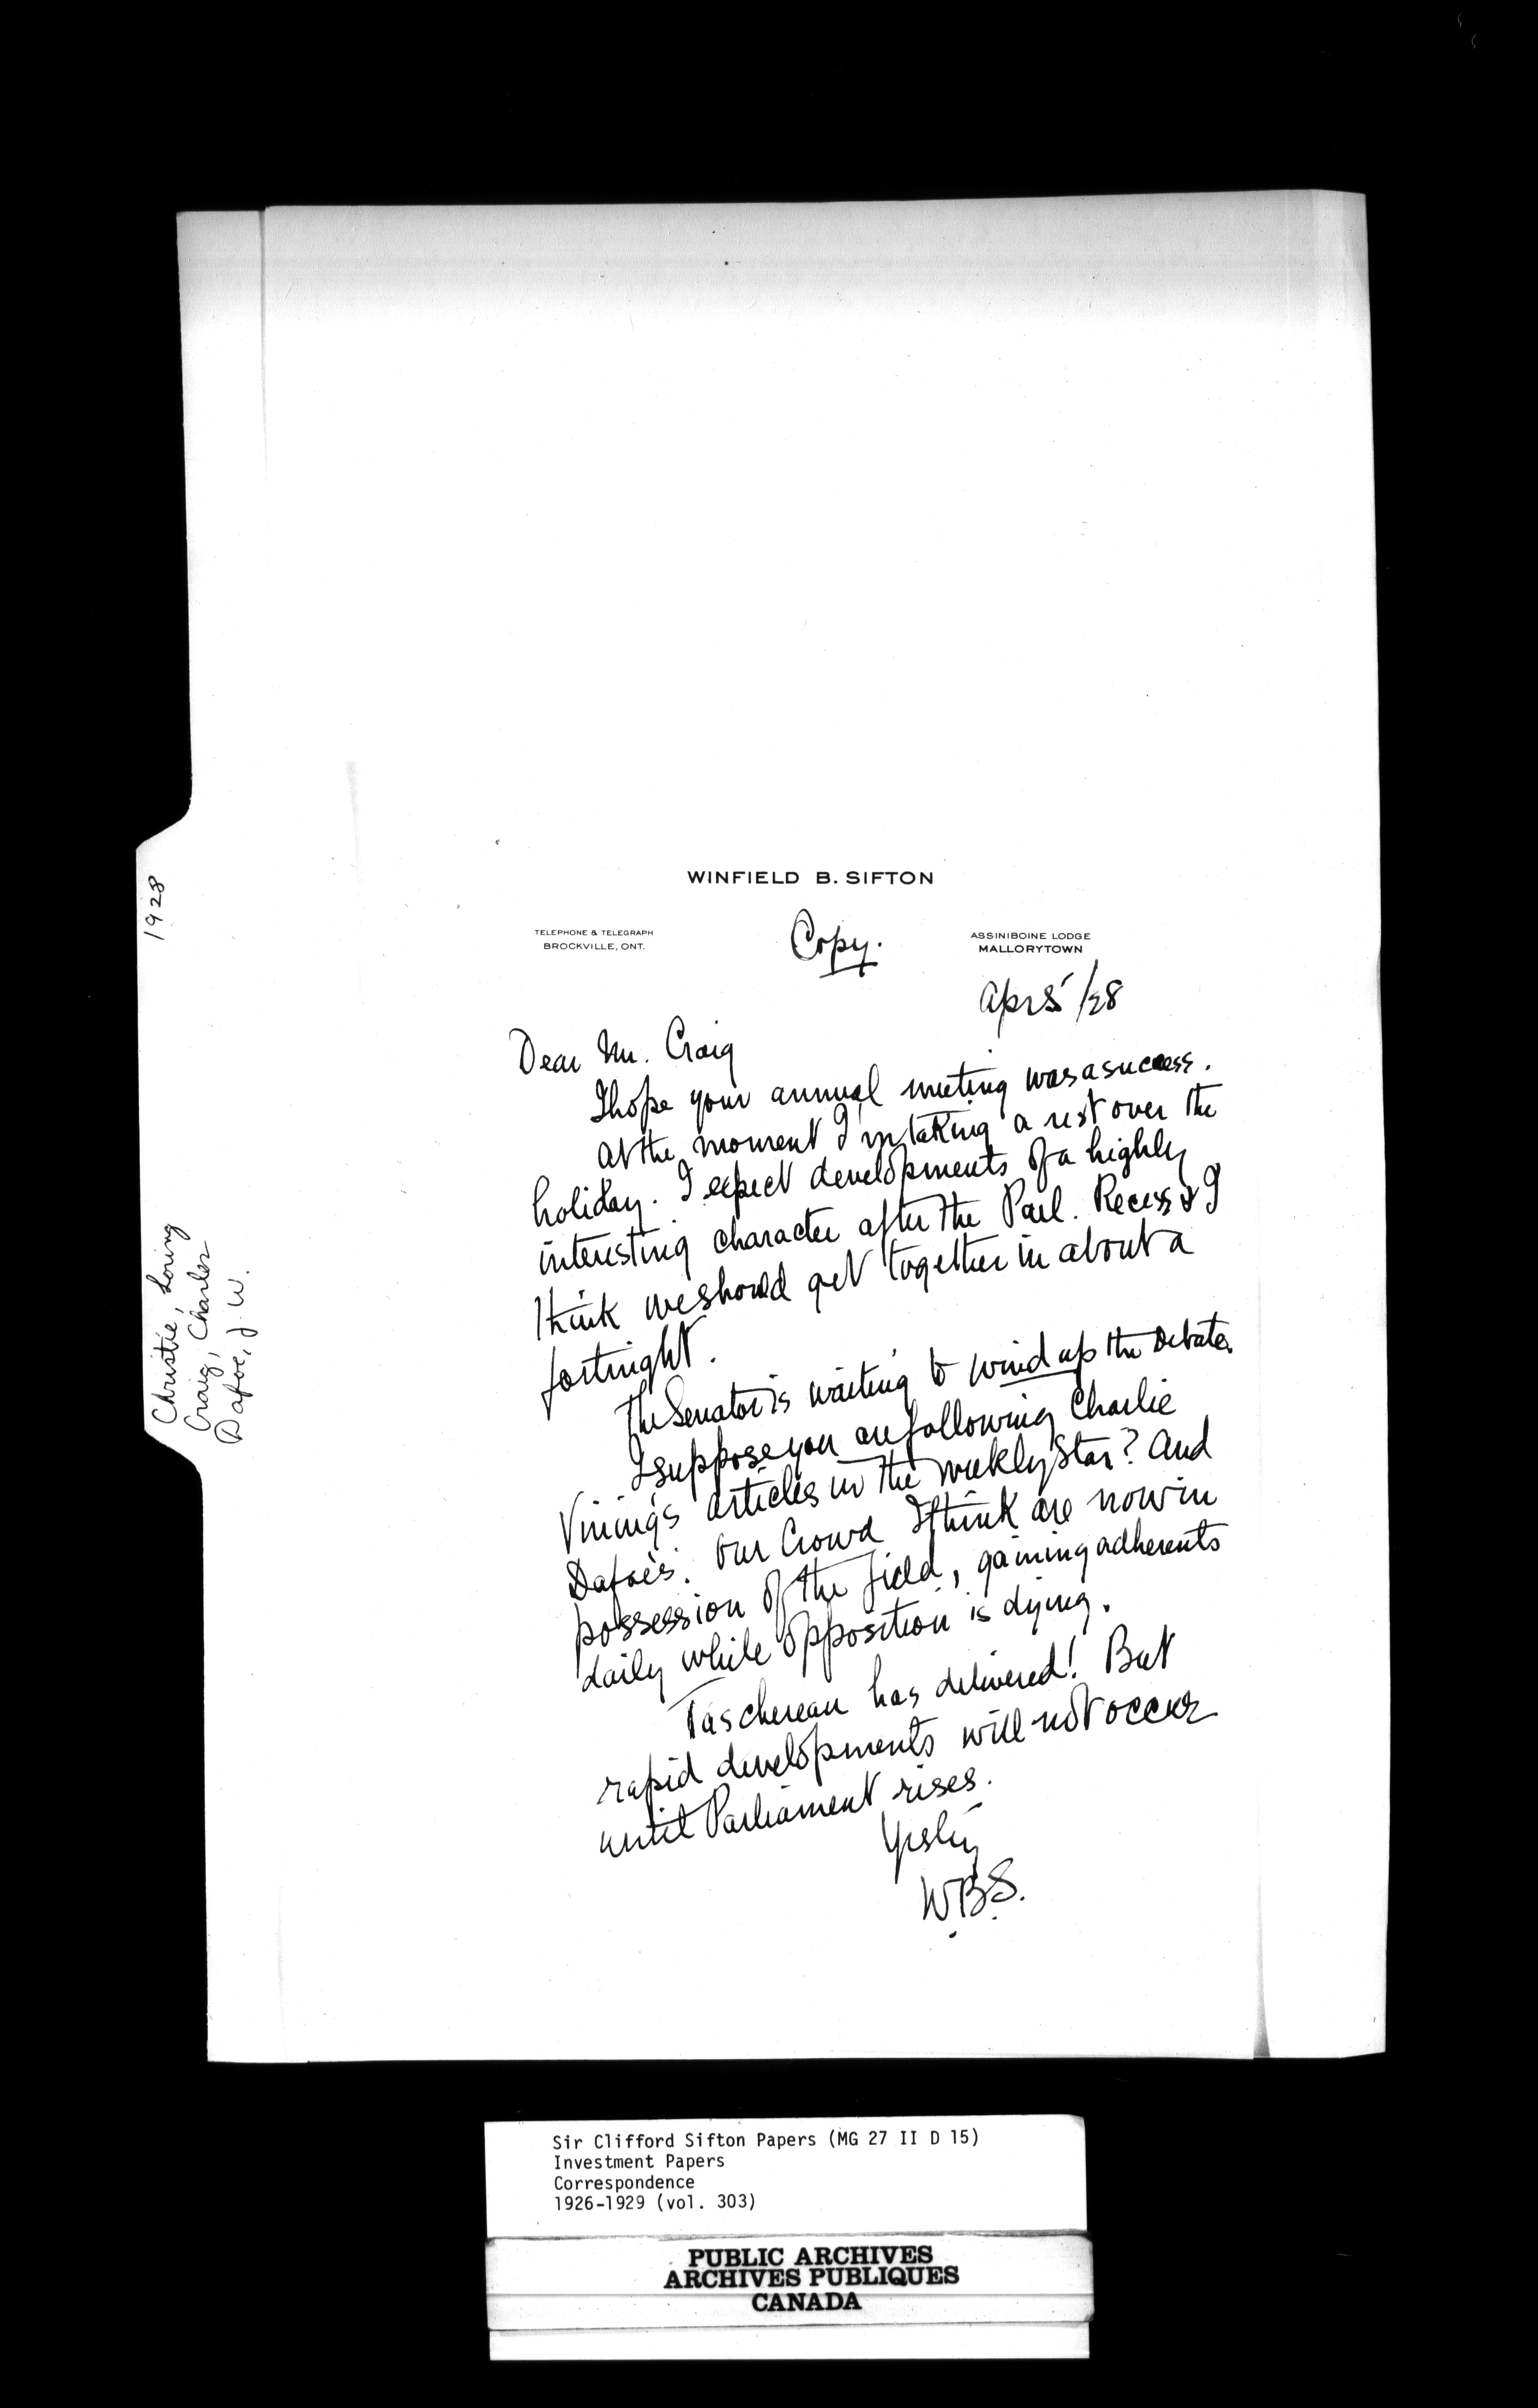 WINFIELD B. SIFTON
TELEPHONE & TELEGRAPH
BROCKVILLE, ONT.
Copy.
ASSINIBOINE LODGE
MALLORYTOWN
Apr 5/28
Dear Mr. Craig
I hope your annual meeting was a success.
At the moment I'm taking a rest over the
holiday. I expect developments of a highly
interesting character after the Parl. Recess & I
think we should get together in about a
fortnight.
The Senator is waiting to wind up the debate.
I suppose you are following Charlie
Vining's articles in the weekly Star? And
Dafoe's. Our Crowd I think are now in
possession of the field, gaining adherents
daily while opposition is dying.
Taschereau has delivered! But
rapid developments will not occur
until Parliament rises.
W.B.S.
1928
Christie, Loring
Craig, Charles
Dafoe, J. W.
Sir Clifford Sifton Papers (MG 27 II D 15)
Investment Papers
Correspondence
1926-1929 (vol. 303)
PUBLIC ARCHIVES
ARCHIVES PUBLIQUES
CANADA